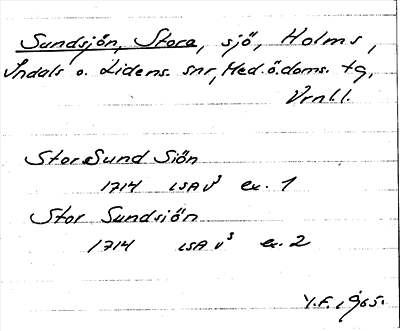 Sundsjön, Stora, sjö, Holms,
Indals o. Lidens. snr, Med.ö.doms. tg,
Vrnl.l.
Stora Sund Siön
1714 LSA V³ ex. 1
Stor Sundsiön
1714 LSA V³ ex. 2
Y.F. 1965.